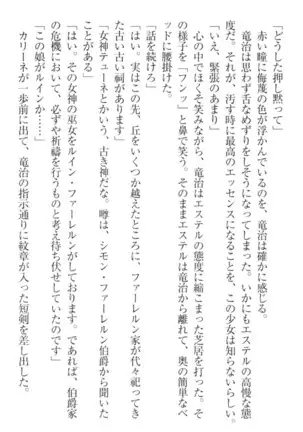 「どうした押し黙って」
赤い瞳に侮蔑の色が浮かんでいるのを、竜治は確かに感じる。
竜治は思わず舌なめずりをしそうになってしまった。いかにもエステルの高慢な態
度だ。それが、汚す時に最高のエッセンスになることを、この少女は知らないらしい。
「いえ、緊張のあまり」
心の中でほくそ笑みながら、竜治はエステルの態度に縮こまった芝居を打った。そ
の様子を「フンッ」と鼻で笑う。そのままエステルは竜治から離れて、奥の簡単なベ
ッドに腰掛けた。
「話を続けろ」
「はい。実はこの先、丘をいくつか越えたところに、ファーレルン家が代々祀ってき
た古い古い祠があります」
「女神テューネとかいう、古き神だな。噂は、シモン・ファーレルン伯爵から聞いた
ことがある」
「はい。その女神の巫女をルイン・ファーレルンがしております。であれば、伯爵家
の危機において、必ずや祈祷を行うものと考え待ち伏せしていたのです」
「この娘がルインか……」
カリーネが一歩前に出て、竜治の指示通りに紋章が入った短剣を差し出した。